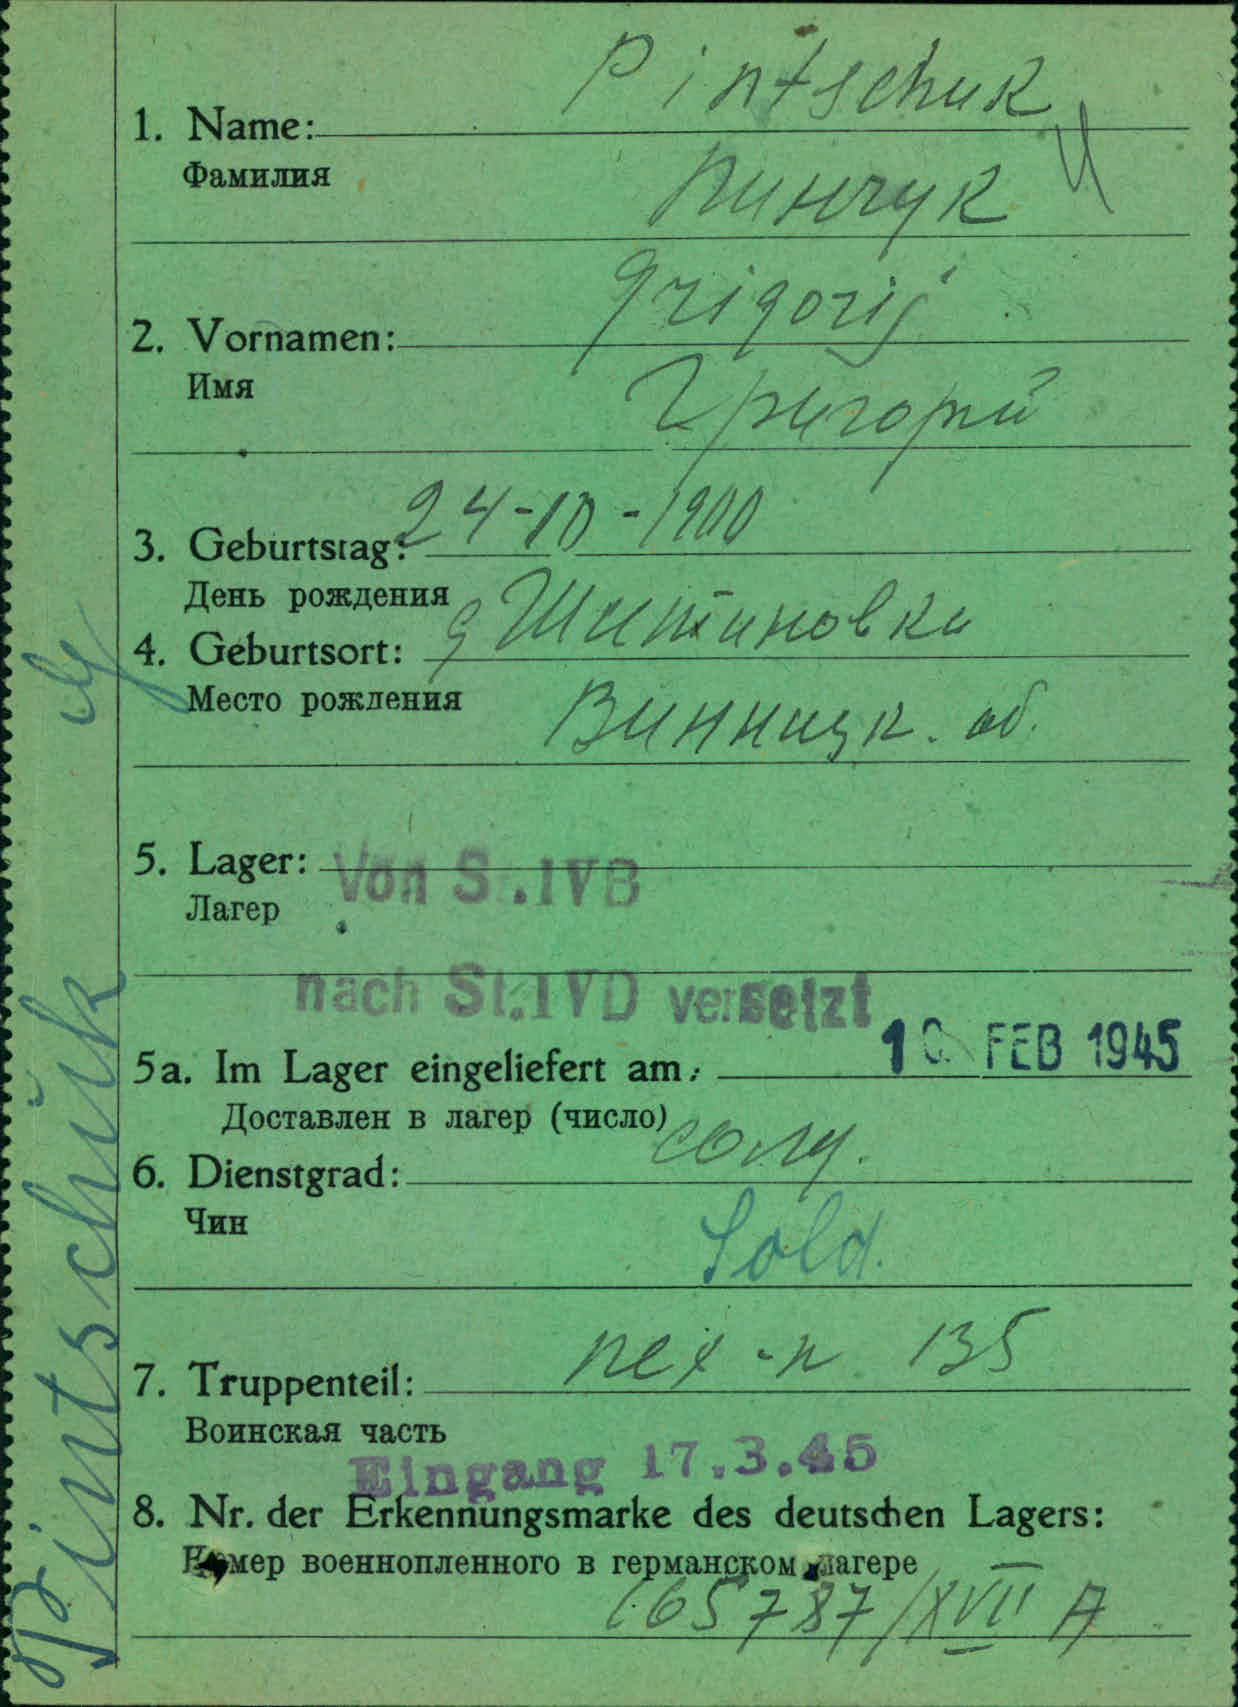 Pintschuk
1. Name:
Фамилия
Пинчук
Grigorij
2. Vornamen:
Имя
Григорий
24-10-1900
3. Geburtstag:
День рождения
4. Geburtsort:
Место рождения
Винницк. об.
5. Lager: Von S .IVB
Лагер
nach St.IVD versetzt
5a. Im Lager eingeliefert am: FEB 1945
Доставлен в лагер (число)
6. Dienstgrad: солд.
Чин
Sold.
7. Truppenteil: пех-п. 135
Воинская часть
Eingang 17.3.45
8. Nr. der Erkennungsmarke des deutschen Lagers:
Номер военнопленного в германском лагере
165787/XVII A
Pintschuk